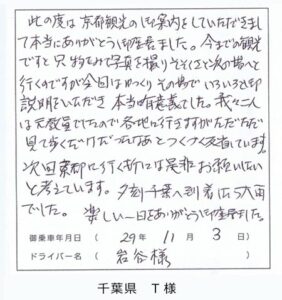 此の度は京都観光の御案内をしていただきまし
て本当にありがとう御座居ました。今までの観光
ですと只物をみて写真を撮りそそくさと次の場へと
行くのですが今回はゆっくりその場でいろいろと御
説明をいただき本当に有意義でした。我々二人
は元教員でしたので各地に行きますがただただ
見て歩くだけだったなあとつくづく反省しています。
次回京都に行く折には是非お願いしたい
と考えています。夕刻千葉へ到着したら大雨
でした。楽しい一日をありがとう御座居ました。
御乗車年月日（ 29年 11月 3日）
ドライバー名（ 岩谷様 ）
千葉県 T様